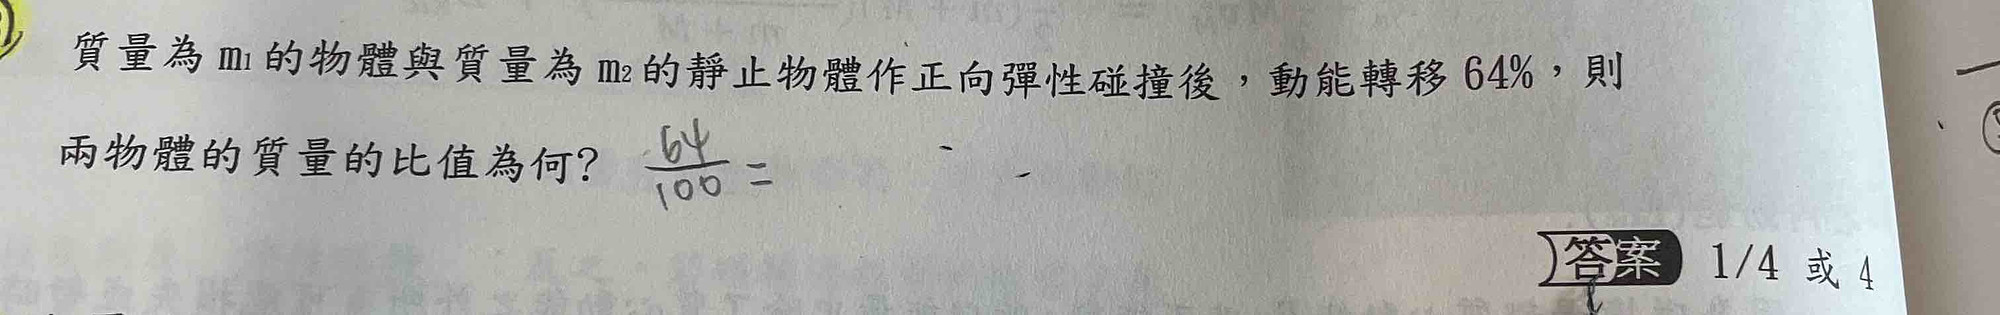 質量為 m₁ 的物體與質量為 m₂ 的靜止物體作正向彈性碰撞後，動能轉移 64%，則
兩物體的質量的比值為何? 64/100 =
答案 1/4 或 4